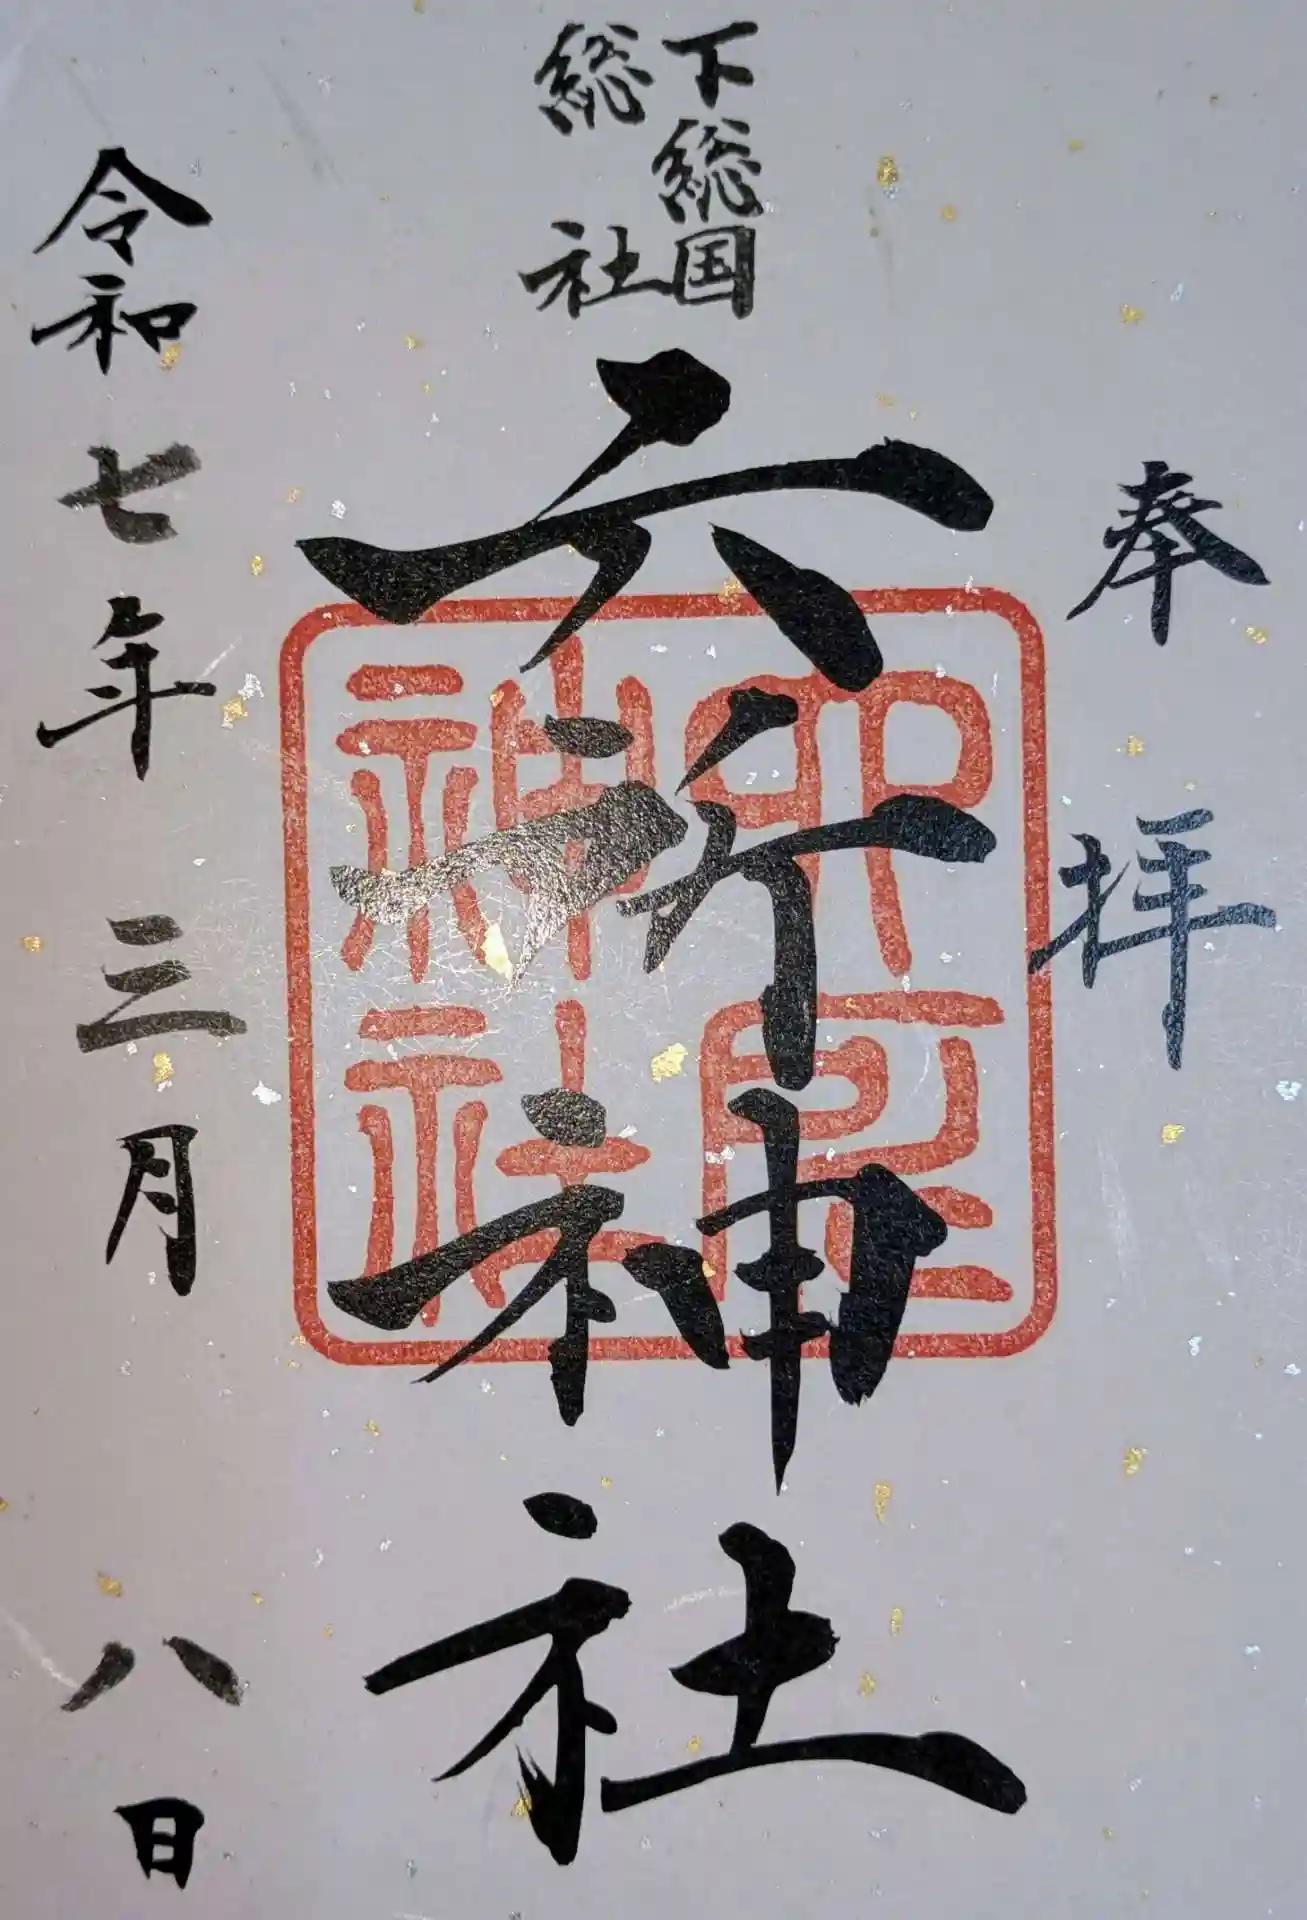 奉拝
下総国
総社
六所神社
印尾
神社
令和七年三月八日